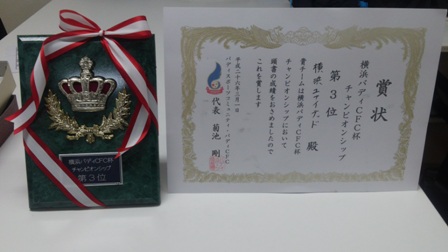 横浜バディCFC杯
チャンピオンシップ
第3位
賞状
横浜バディCFC杯
チャンピオンシップ
第3位
殿
貴チームは横浜バディCFC杯
チャンピオンシップにおいて
頭書の成績をおさめましたので
これを賞します
平成二十六年三月
代表 菊池 剛